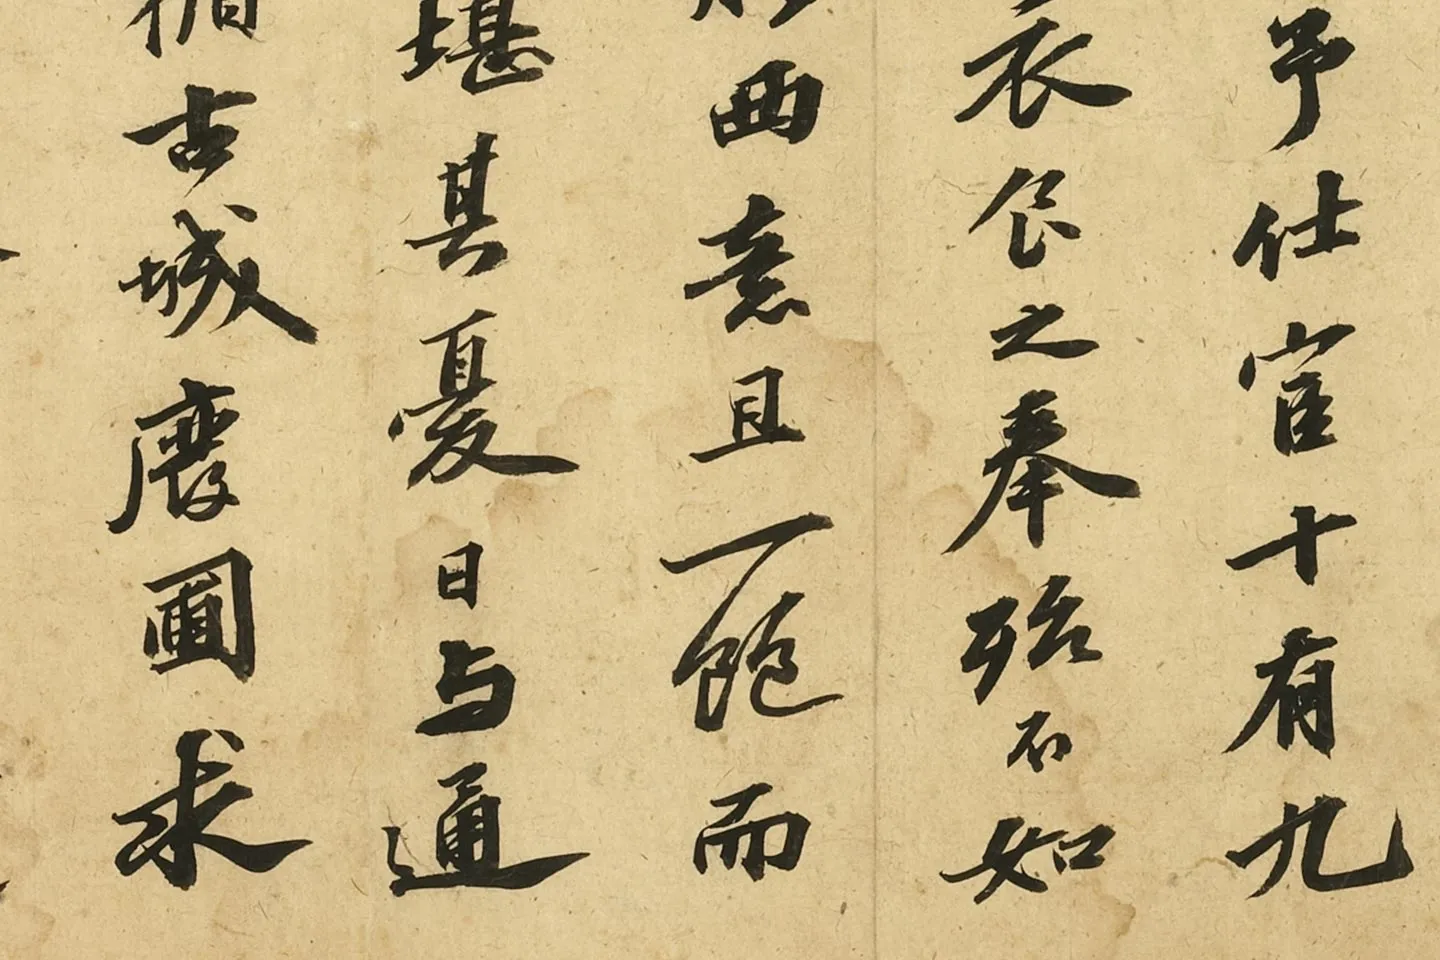 予仕宦十有九
衣食之奉殆不如
西意且一飽而
堪其憂日与通
循古城廢圃求